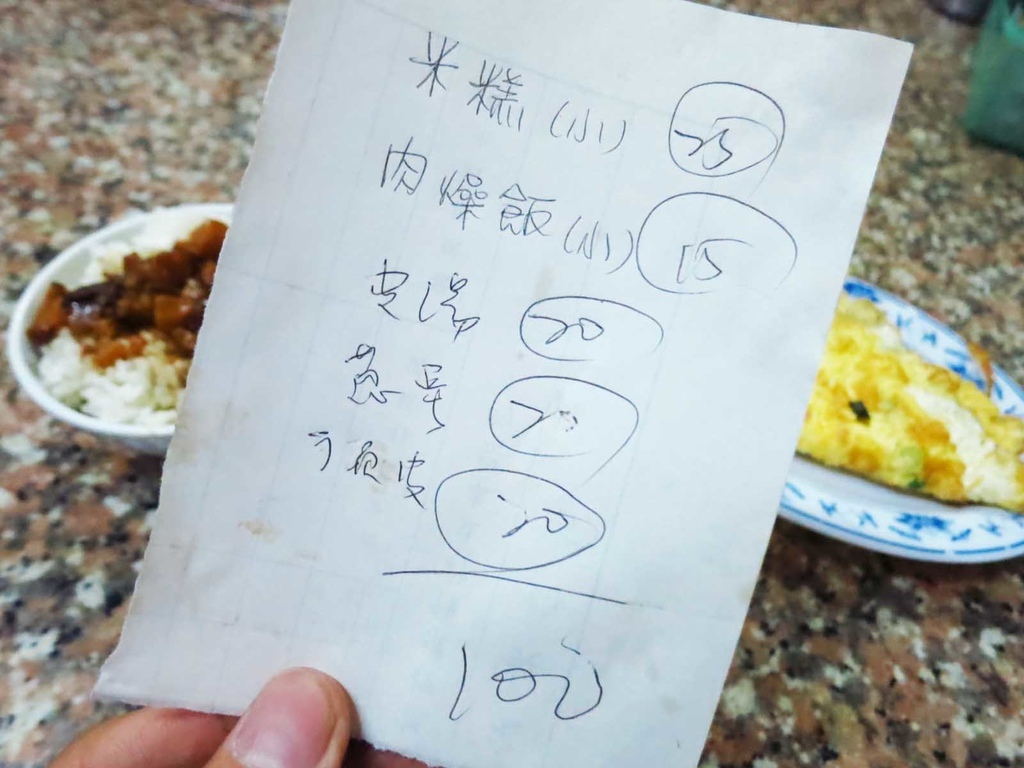 米糕(小) 25
肉燥飯(小) 15
皮湯 20
蔥蛋 20
下頦皮 20
100